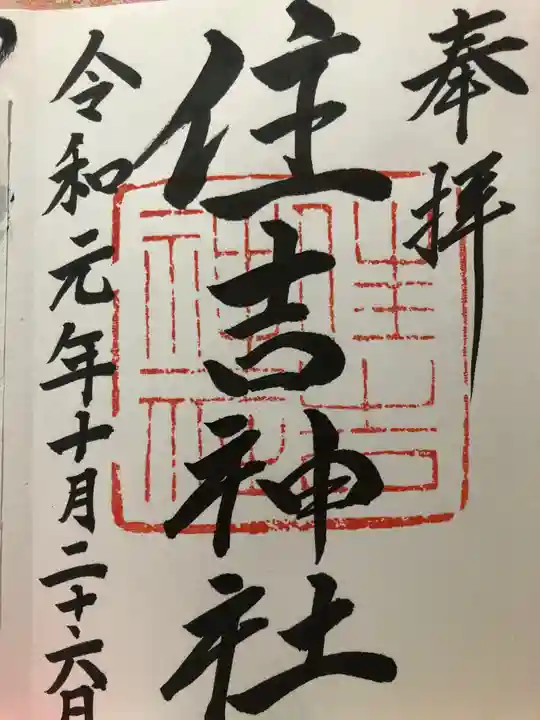 奉拝
住吉神社
令和元年十月二十六日